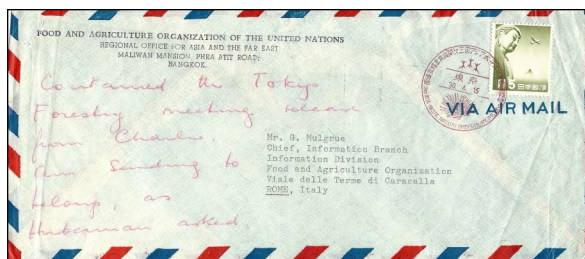 FOOD AND AGRICULTURE ORGANIZATION OF THE UNITED NATIONS
REGIONAL OFFICE FOR ASIA AND THE FAR EAST
MALIWAN MANSION, PHRA ATIT ROAD,
BANGKOK.
Contained the Tokyo
Forestry meeting release
from Charles
am sending to
as
Huberman asked
115 日本郵便
東京
VIA AIR MAIL
Mr. G. Mulgrue
Chief, Information Branch
Information Division
Food and Agriculture Organization
Viale delle Terme di Caracalla
ROME, Italy